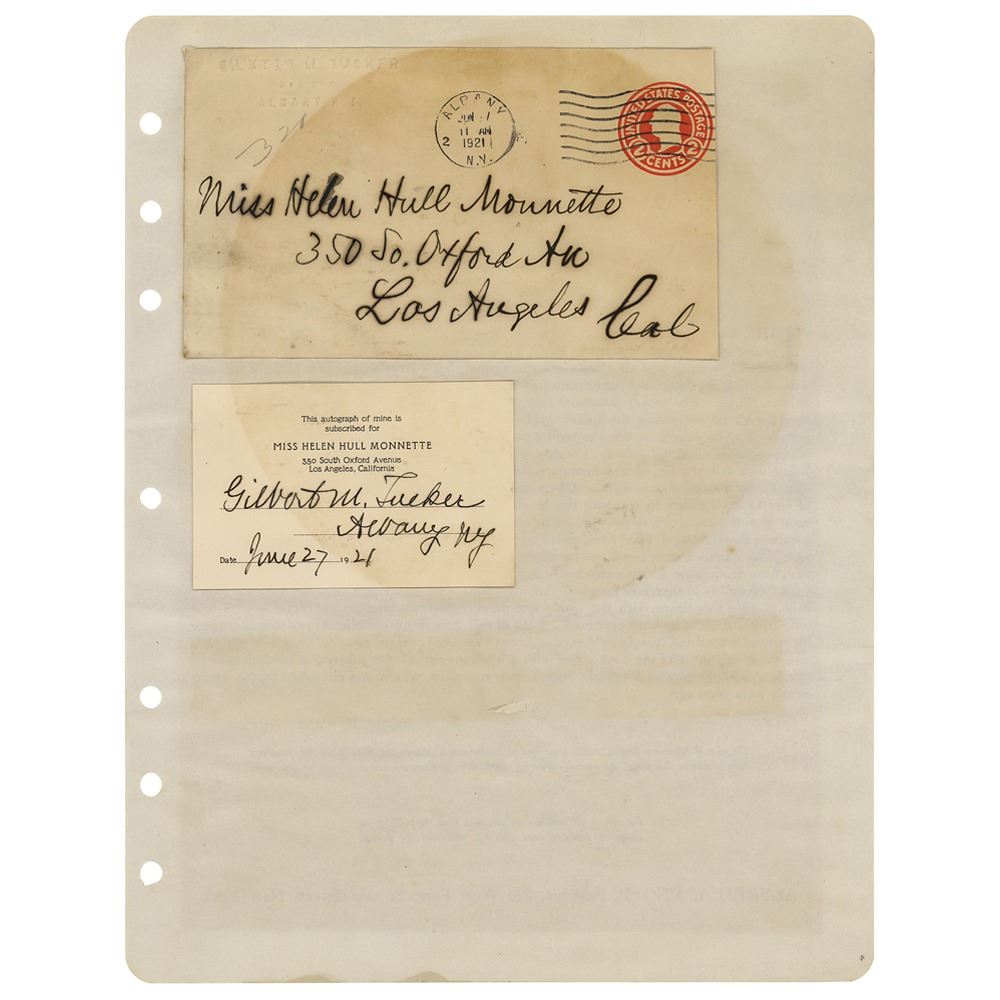 GILBERT M. TUCKER
ALBANY, N.Y.
ALBANY
JUN
11 AM
2 1921
N.Y.
UNITED STATES POSTAGE
2 CENTS 2
Miss Helen Hull Monnette
350 So. Oxford Av
Los Angeles Cal
This autograph of mine is
subscribed for
MISS HELEN HULL MONNETTE
350 South Oxford Avenue
Los Angeles, California
Gilbert M. Tucker
Albany NY
Date June 27 1921